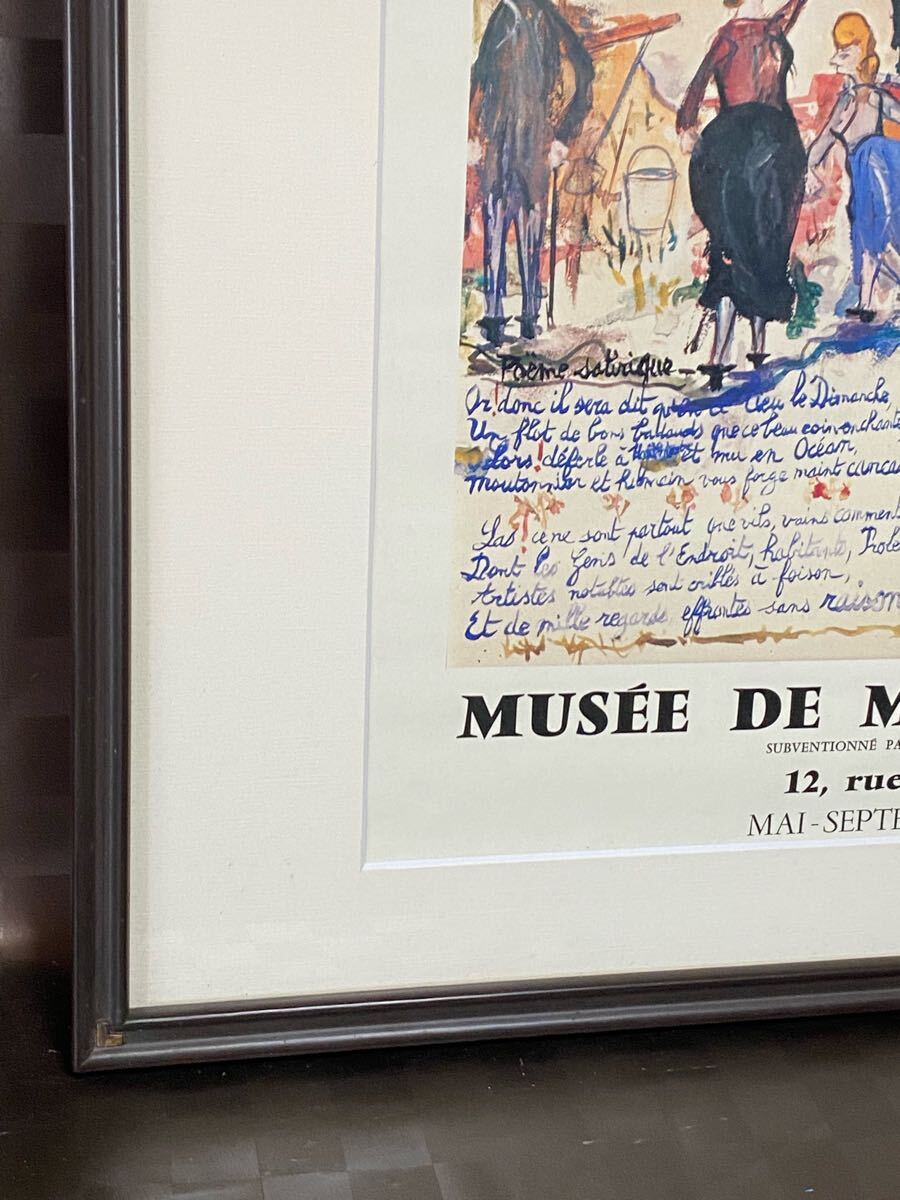 Poëme satirique
Or! donc il sera dit qu'en ce Lieu le Dimanche,
Un flot de bons badauds que ce beau coin enchante
Lors! déferle à et mu en Océan,
Moutonnier et humain vous forge maint cancan
Las! ce ne sont partout que vils, vains comment
Dont les Gens de l'Endroit, habitants, Prolé
Artistes notables sont criblés à foison,
Et de mille regards effrontés sans raison
MUSÉE DE M
SUBVENTIONNÉ PA
12, rue
MAI-SEPTE